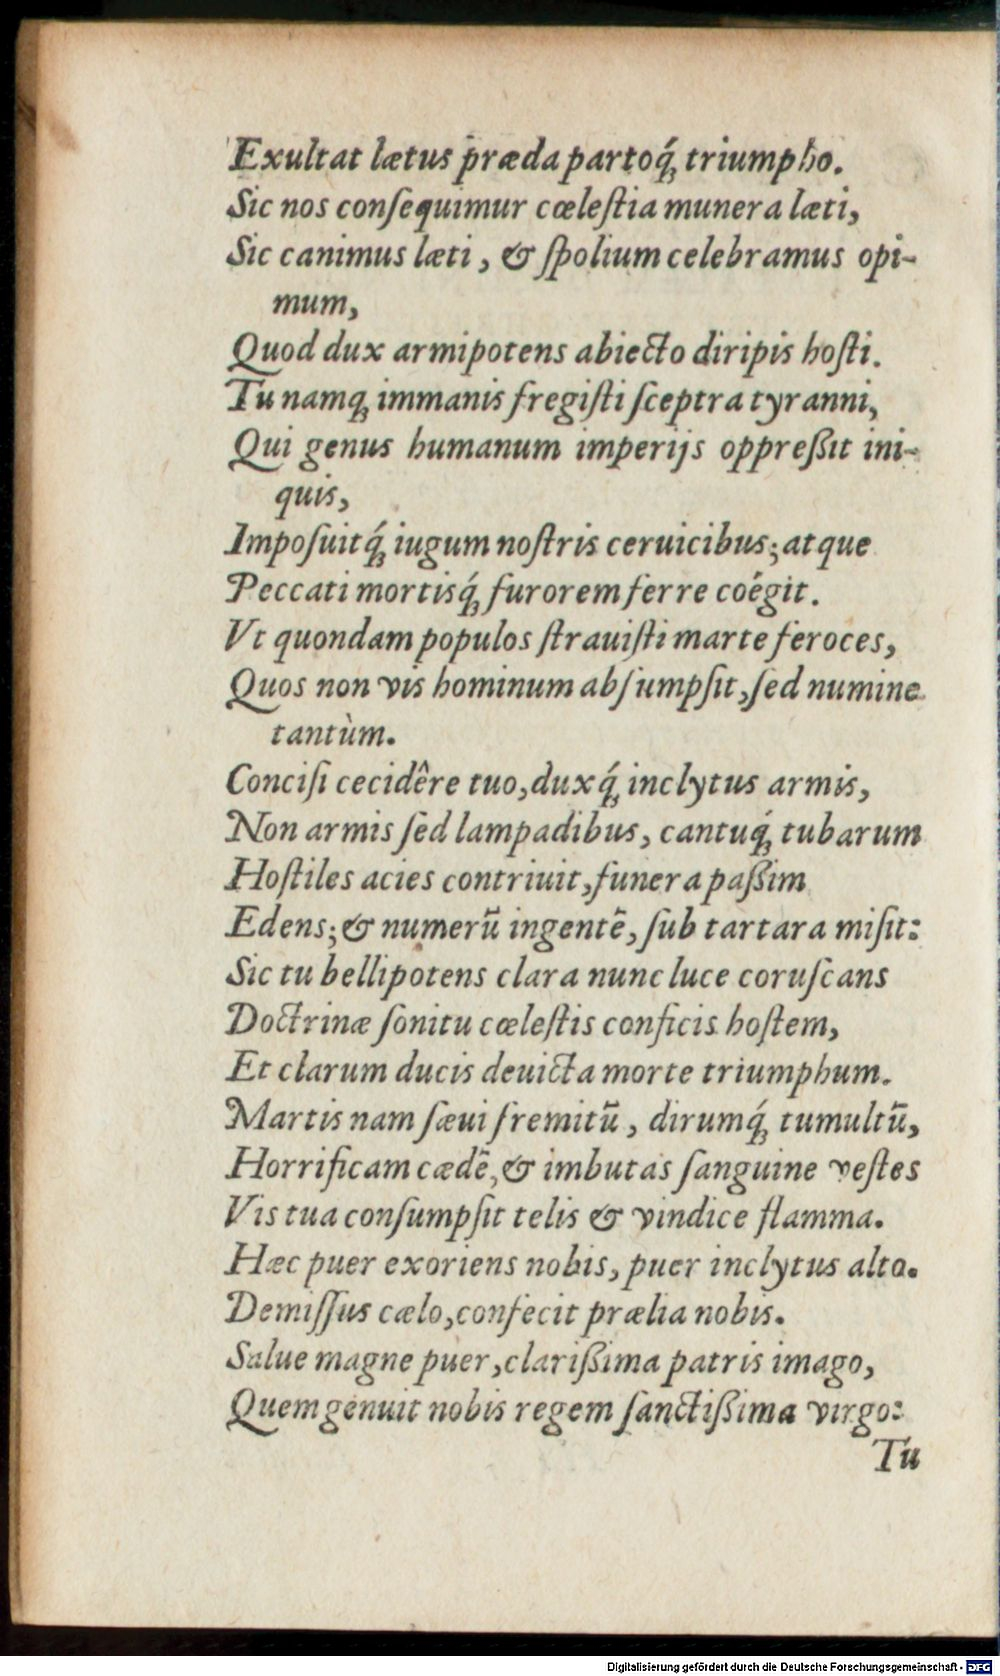 Exultat lætus præda partoq́; triumpho.
Sic nos conſequimur cœleſtia munera læti,
Sic canimus læti, & ſpolium celebramus opi-
mum,
Quod dux armipotens abiecto diripis hoſti.
Tu namq; immanis fregiſti ſceptra tyranni,
Qui genus humanum imperijs oppreßit ini-
quis,
Impoſuitq́; iugum noſtris ceruicibus; atque
Peccati mortisq́; furorem ferre coégit.
Vt quondam populos ſtrauiſti marte feroces,
Quos non vis hominum abſumpſit, ſed numine
tantùm.
Conciſi cecidêre tuo, duxq́; inclytus armis,
Non armis ſed lampadibus, cantuq́; tubarum
Hoſtiles acies contriuit, funera paßim
Edens; & numerū ingentē, ſub tartara miſit:
Sic tu bellipotens clara nunc luce coruſcans
Doctrinæ ſonitu cœleſtis conficis hoſtem,
Et clarum ducis deuicta morte triumphum.
Martis nam ſæui fremitū, dirumq́; tumultū,
Horrificam cædē, & imbutas ſanguine veſtes
Vis tua conſumpſit telis & vindice flamma.
Hæc puer exoriens nobis, puer inclytus alto.
Demiſſus cælo, confecit prælia nobis.
Salue magne puer, clarißima patris imago,
Quem genuit nobis regem ſanctißima virgo:
Tu
Digitalisierung gefördert durch die Deutsche Forschungsgemeinschaft - DFG